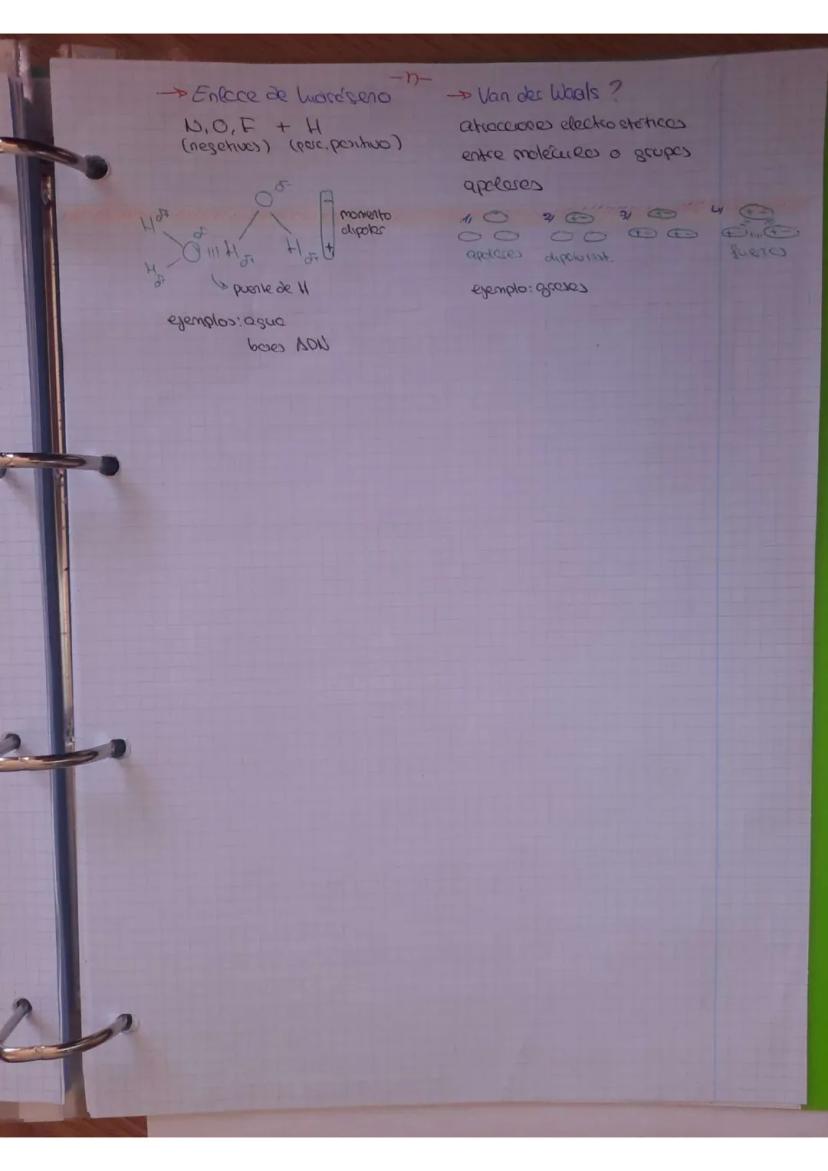 -n-
→ Enlace de hidrógeno
N, O, F + H
(negativos) (parc. positivo)
O δ-
H δ+
O δ- ||| H δ+
H δ+
H δ+
-
+
momento
dipolar
↳ puente de H
ejemplos: agua
bases ADN
→ Van der Waals?
atracciones electrostáticas
entre moléculas o grupos
apolares
1) 2) + - 3) + - 4) + -
+ - + - + - + -
apolares dipolo inst. fuerza
ejemplo: gases